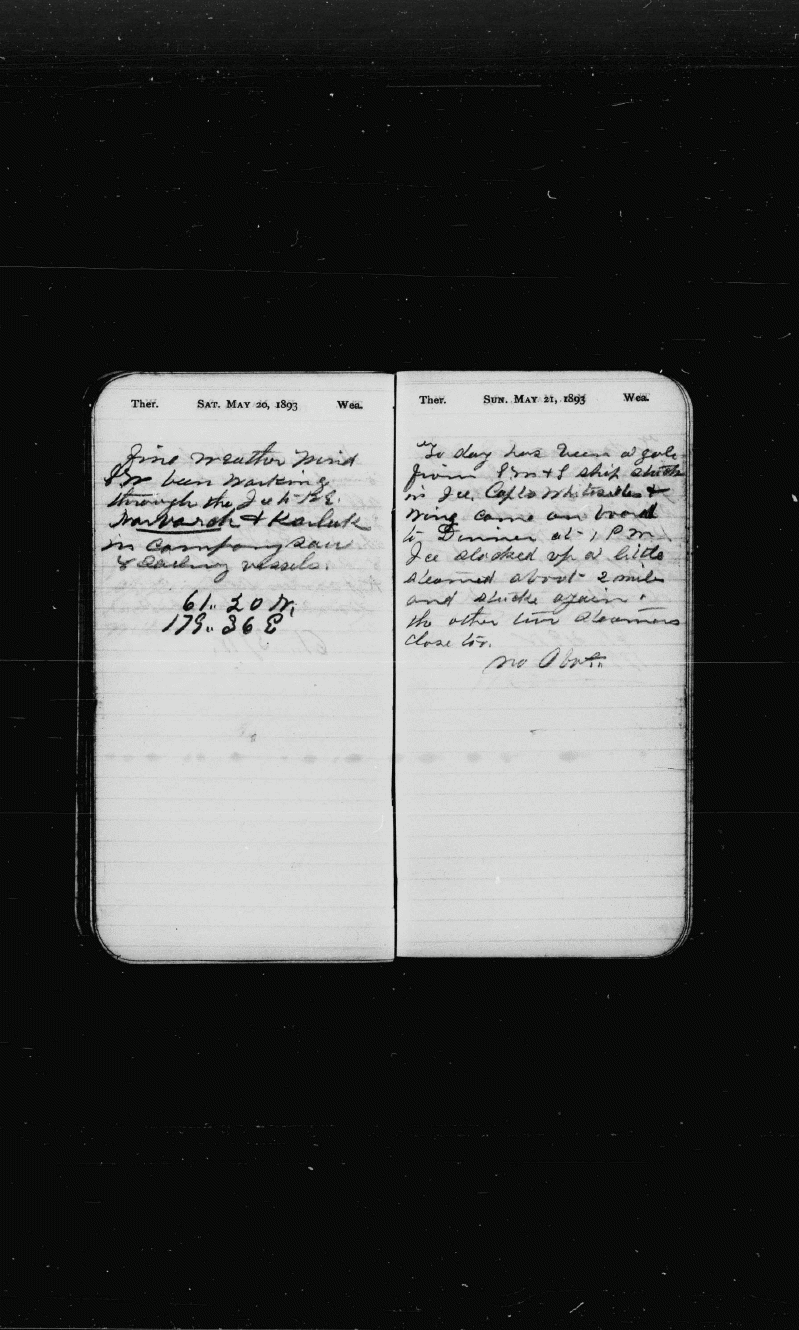 Ther. SAT. MAY 20, 1893 Wea.
fine weather wind
SW been working
through the Ice to NE.
Narvarch & Karluk
in company saw
8 sailing vessels.
61.. 20 N.
179.. 36 E
Ther. SUN. MAY 21, 1893 Wea.
To day has been a gale
from S ship stuck
in Ice. Capts Whitesides &
Wing came on board
to Dinner at 1 P.m.
Ice slacked up a little
steamed about 2 miles
and stuck again.
the other two steamers
close to.
no Obs..